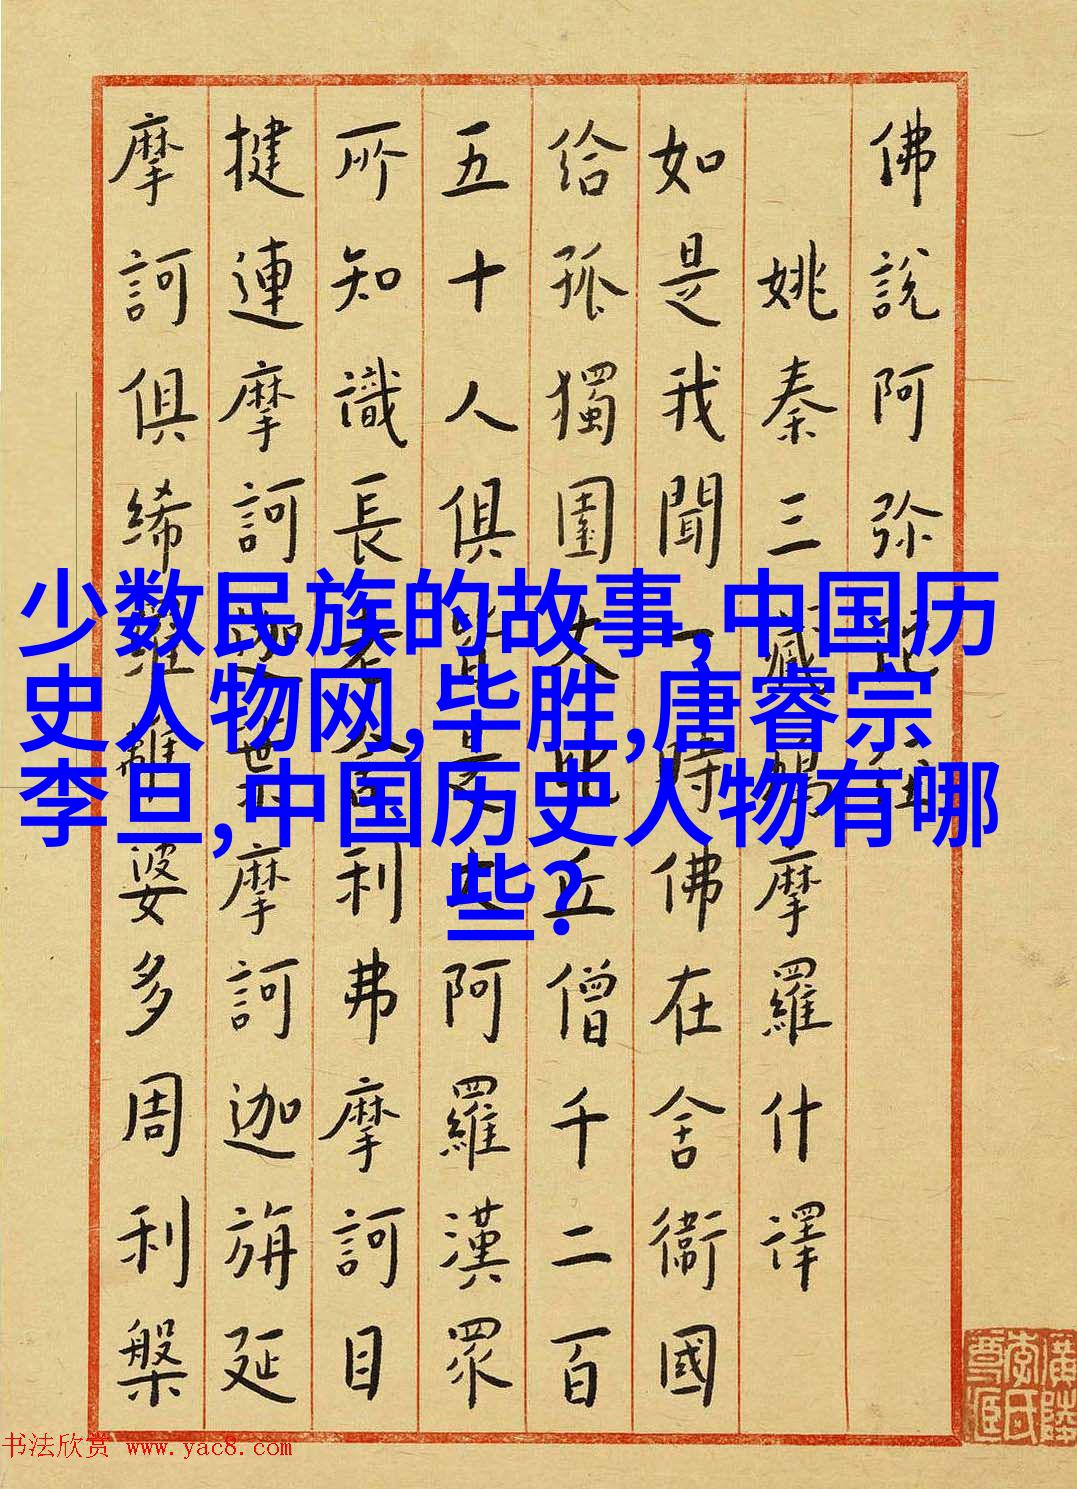 少数民族的故事,中国历
史人物网,毕胜,唐睿宗
李旦,中国历史人物有哪
些?
佛說阿弥陀經
姚秦三藏鳩摩羅什譯
如是我聞一時佛在舍衞國
給孤獨園大比丘僧千二百
五十人俱皆是大阿羅漢眾
所知識長老舍利弗摩訶目
揵連摩訶迦葉摩訶迦旃延
摩訶俱絺羅離婆多周利槃
廣陵
李氏
书法欣赏 www.yac8.com